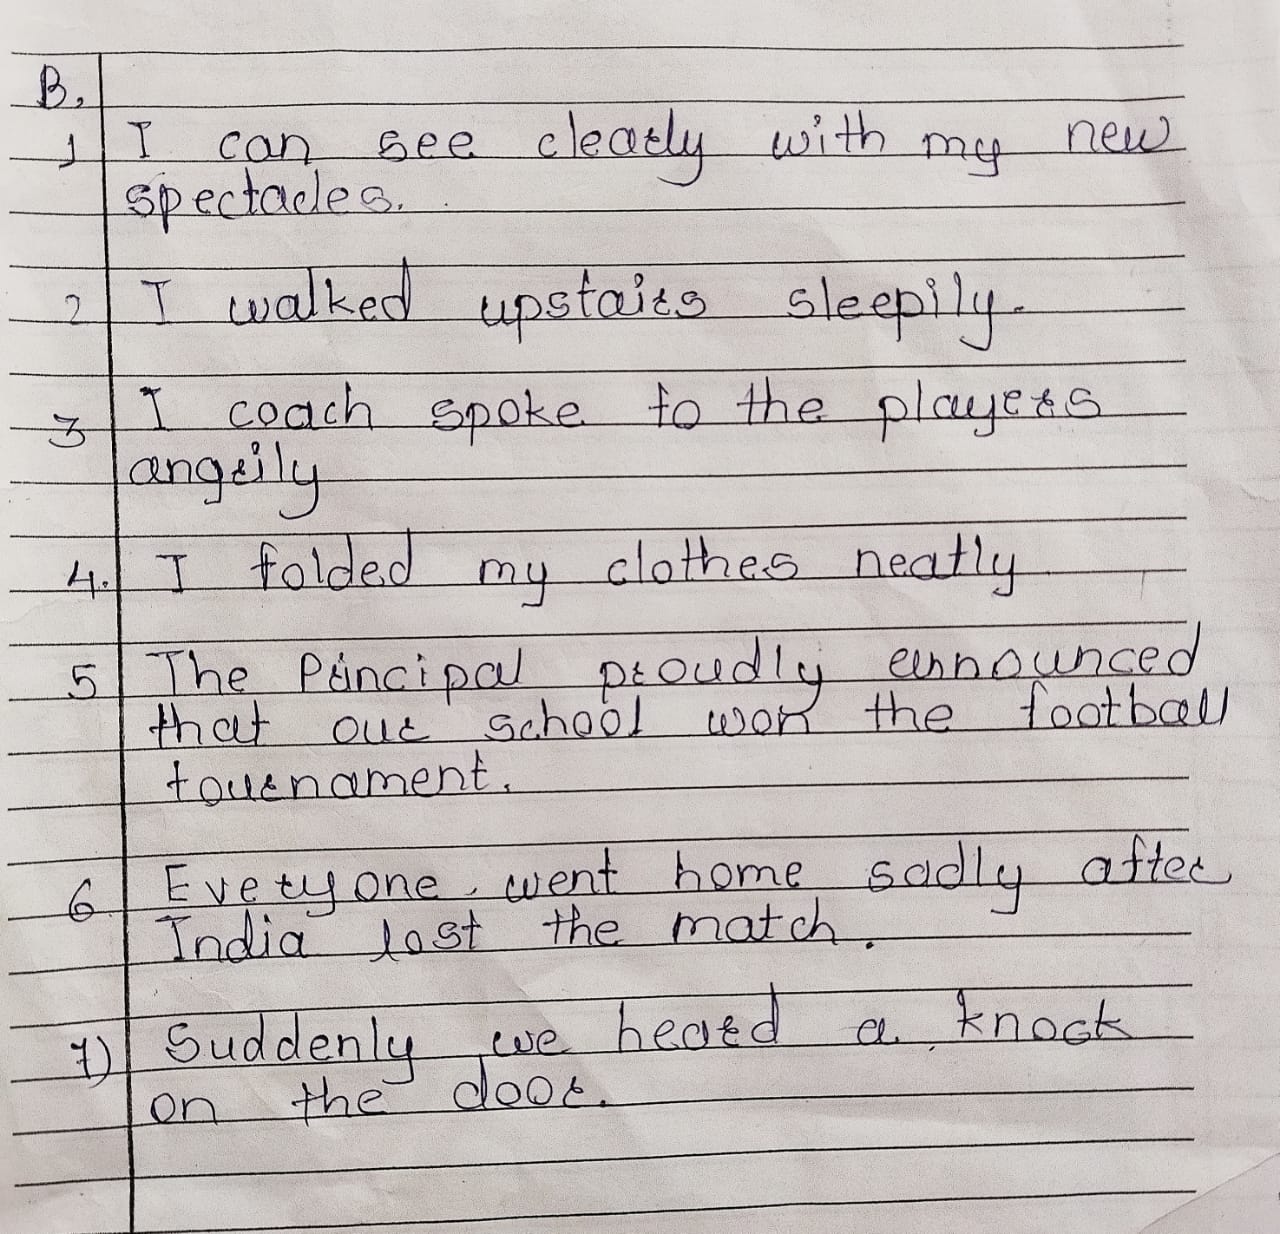 B.
1 I can see clearly with my new
spectacles.
2 I walked upstairs sleepily.
3 I coach spoke to the players
angrily
4. I folded my clothes neatly
5 The Principal proudly announced
that our school won the football
tournament.
6 Everyone went home sadly after
India lost the match.
7) Suddenly we heard a knock
on the door.